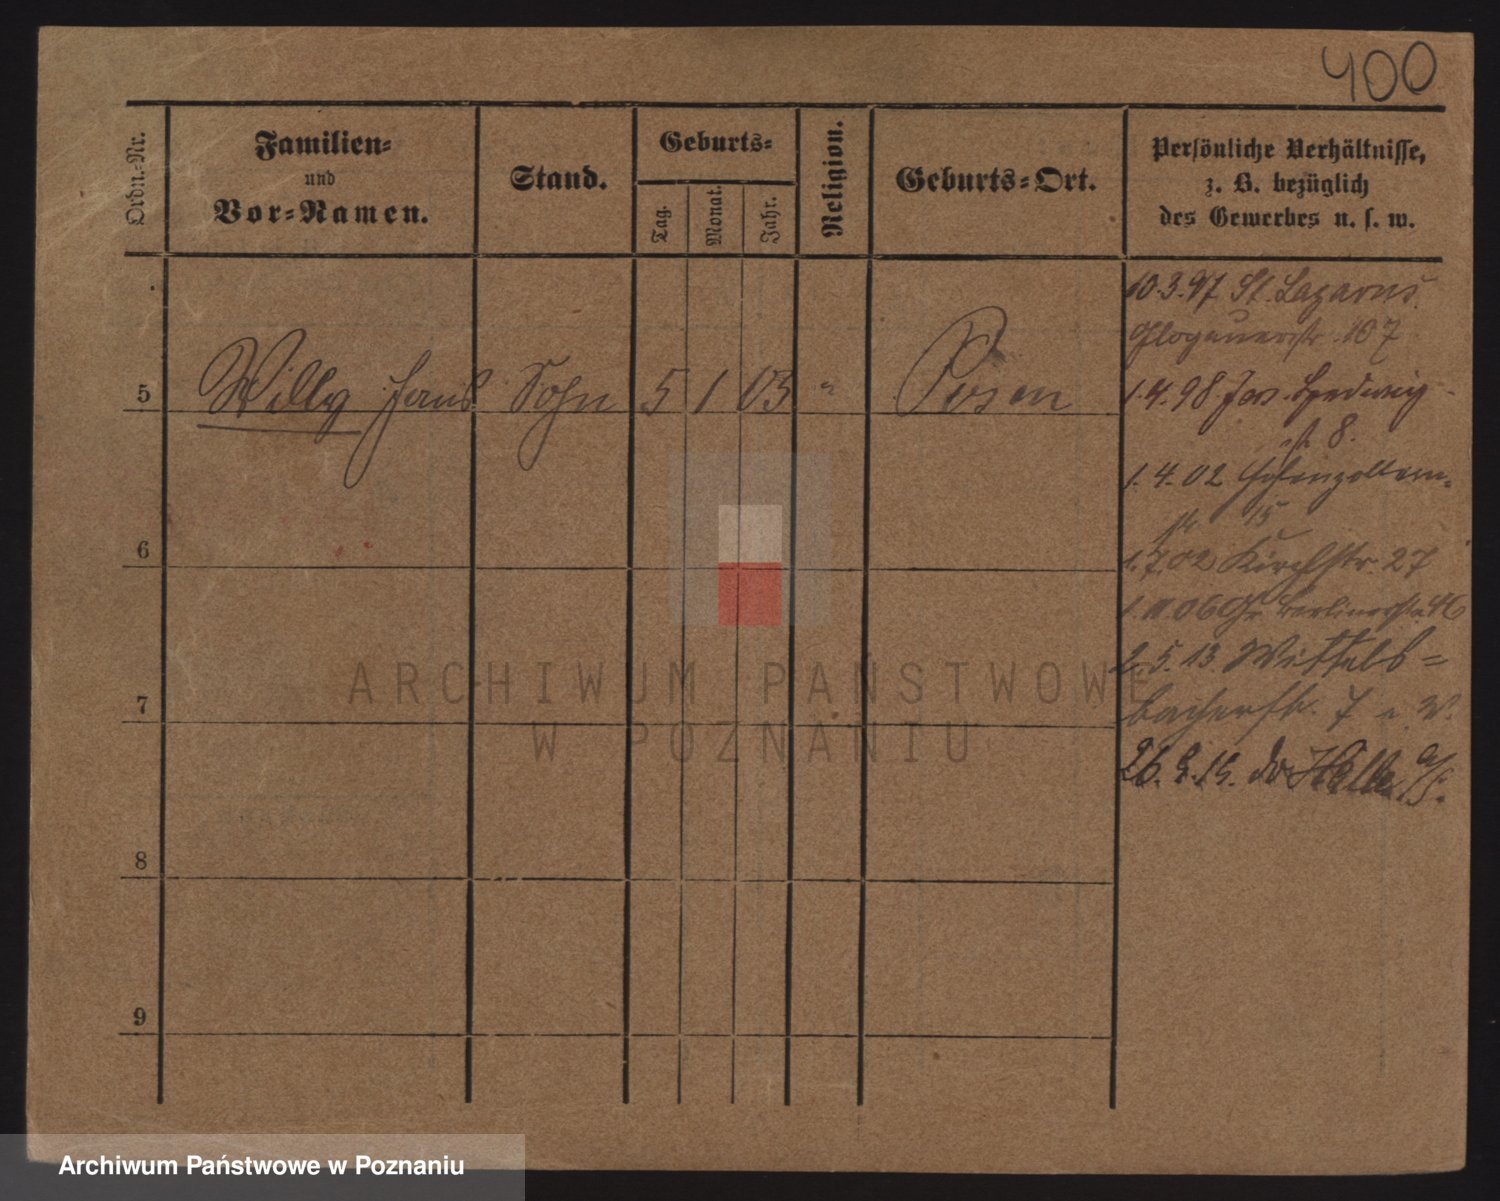 400
Ordn.-Nr.
Familien-
und
Vor-Namen.
Stand.
Geburts-
Tag.
Monat.
Jahr.
Religion.
Geburts-Ort.
Persönliche Verhältnisse,
z. B. bezüglich
des Gewerbes u. s. w.
10.3.97 St. Lazarus
Glogauerstr. 107
5 Willy Hans Sohn 5 1 03 " Posen
1.4.98 Jer. Hedwig-
str. 8.
1.4.02 Hohenzollern-
str. 15
6
1.7.02 Kirchstr. 27
1.11.06 Gr. Berlinerstr. 46
2.5.13 Wittelsb=
bacherstr. 7
7
26. 19. Halle a/S.
8
9
ARCHIWUM PAŃSTWOWE
W POZNANIU
Archiwum Państwowe w Poznaniu